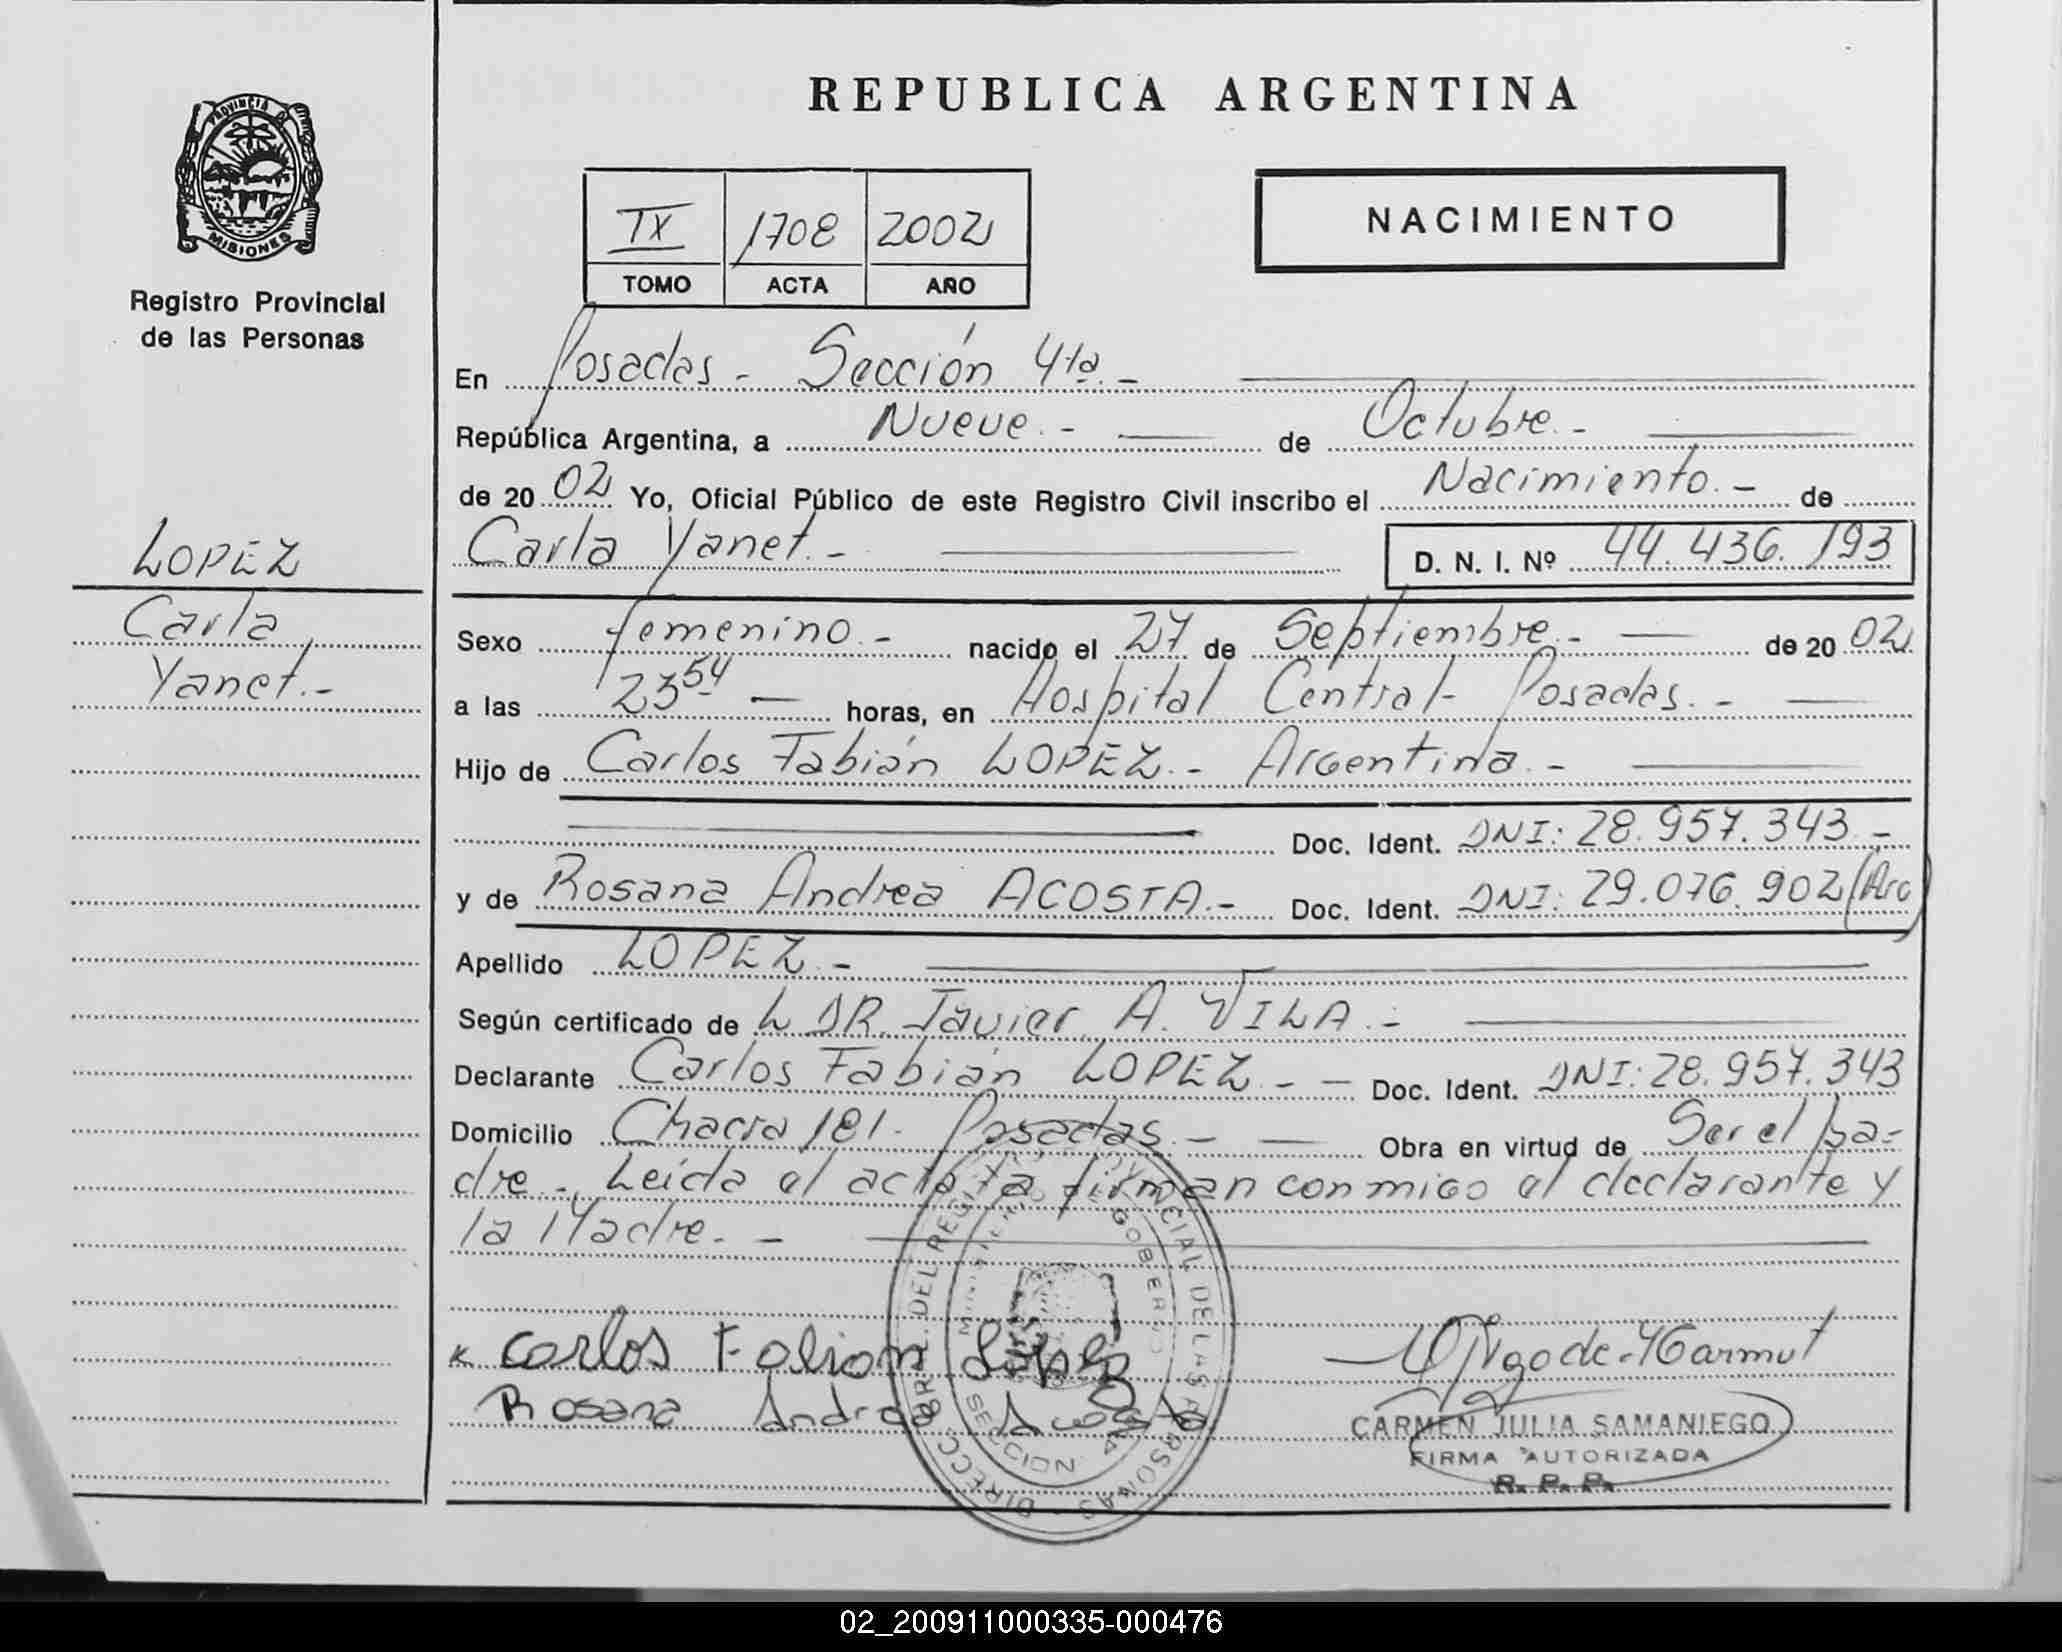 REPUBLICA ARGENTINA
PROVINCIA DE
MISIONES
Registro Provincial
de las Personas
IX 1708 2002
TOMO ACTA AÑO
NACIMIENTO
LOPEZ
Carla
Yanet.-
En Posadas - Sección 4ta.-
República Argentina, a Nueve.- de Octubre.-
de 20 02 Yo, Oficial Público de este Registro Civil inscribo el Nacimiento.- de
Carla Yanet.- D. N. I. Nº 44.436.193
Sexo femenino.- nacido el 27 de Septiembre.- de 20 02
a las 23 54 horas, en Hospital Central - Posadas.-
Hijo de Carlos Fabián LOPEZ.- Argentina.-
Doc. Ident. DNI: 28.957.343.-
y de Rosana Andrea ACOSTA.- Doc. Ident. DNI: 29.076.902 (Arg)
Apellido LOPEZ.-
Según certificado de L DR. Javier A. VILA.-
Declarante Carlos Fabián LOPEZ.- Doc. Ident. DNI: 28.957.343
Domicilio Chacra 181- Posadas.- Obra en virtud de Ser el Pa-
dre.- Leída el acta la firman conmigo el declarante y
la Madre.-
Carlos Fabian López
Rosana Andrea Acosta
DIRECC. GRAL. DEL REGISTRO PROVINCIAL DE LAS PERSONAS
MINISTERIO GOBIERNO
SECCION 4
CARMEN JULIA SAMANIEGO
FIRMA AUTORIZADA
R. P. P.
02_200911000335-000476